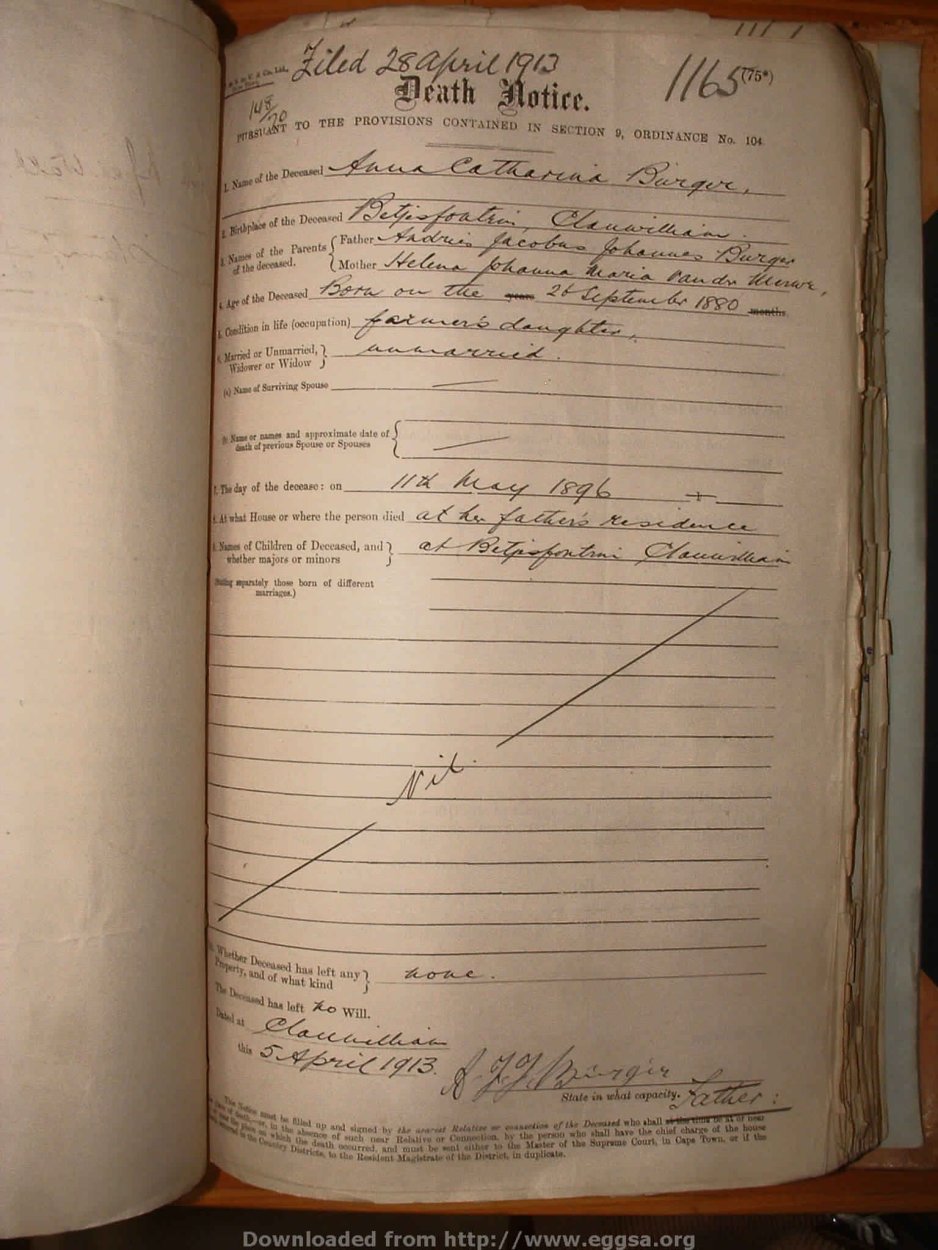 Filed 28 April 1913
1165 (75*)
Death Notice.
148/70
PURSUANT TO THE PROVISIONS CONTAINED IN SECTION 9, ORDINANCE No. 104
1. Name of the Deceased Anna Catharina Burger,
2. Birthplace of the Deceased Betjesfontein, Clanwilliam.
3. Names of the Parents of the deceased. { Father Andries Jacobus Johannes Burger
Mother Helena Johanna Maria van der Merwe,
4. Age of the Deceased Born on the years 26 September 1880 months
5. Condition in life (occupation) farmer's daughter,
6. Married or Unmarried, Widower or Widow } unmarried.
(a) Name of Surviving Spouse —
(b) Name or names and approximate date of death of previous Spouse or Spouses { —
7. The day of the decease: on 11th May 1896
8. At what House or where the person died at her father's residence
9. Names of Children of Deceased, and whether majors or minors } at Betjesfontein Clanwilliam
(Stating separately those born of different marriages.)
Nil.
Whether Deceased has left any Property, and of what kind } none.
The Deceased has left no Will.
Dated at Clanwilliam
this 5 April 1913.
A J J Burger
State in what capacity. Father:
The Notice must be filled up and signed by the nearest Relative or connection of the Deceased who shall at the time be at or near
place of death—or, in the absence of such near Relative or Connection, by the person who shall have the chief charge of the house
the place on which the death occurred, and must be sent either to the Master of the Supreme Court, in Cape Town, or if the
occurred in the Country Districts, to the Resident Magistrate of the District, in duplicate.
Downloaded from http://www.eggsa.org